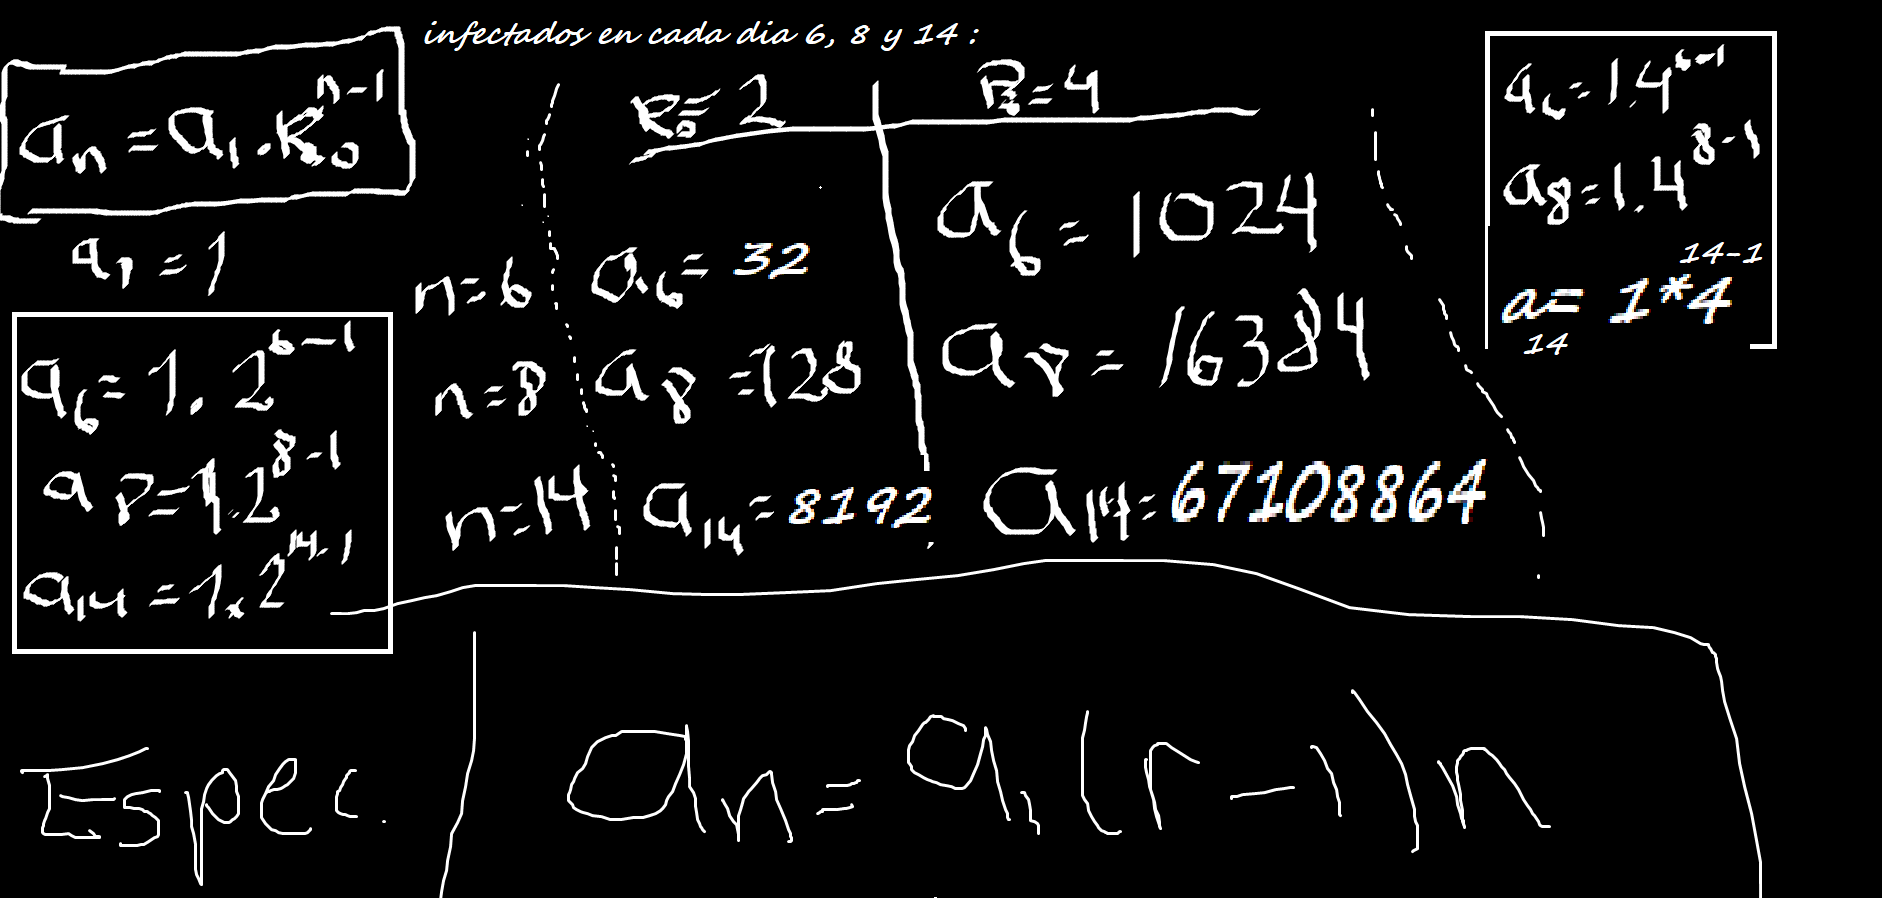 infectados en cada dia 6, 8 y 14 :
aₙ = a₁ . R₀ⁿ⁻¹
a₁ = 1
a₆ = 1 . 2⁶⁻¹
a₈ = 1 . 2⁸⁻¹
a₁₄ = 1 . 2¹⁴⁻¹
R₀ = 2 R₀ = 4
n = 6 a₆ = 32 a₆ = 1024
n = 8 a₈ = 128 a₈ = 16384
n = 14 a₁₄ = 8192 a₁₄ = 67108864
a₆ = 1 . 4⁶⁻¹
a₈ = 1 . 4⁸⁻¹
a₁₄ = 1*4¹⁴⁻¹
Espec.
aₙ = a₁ (r - 1) n